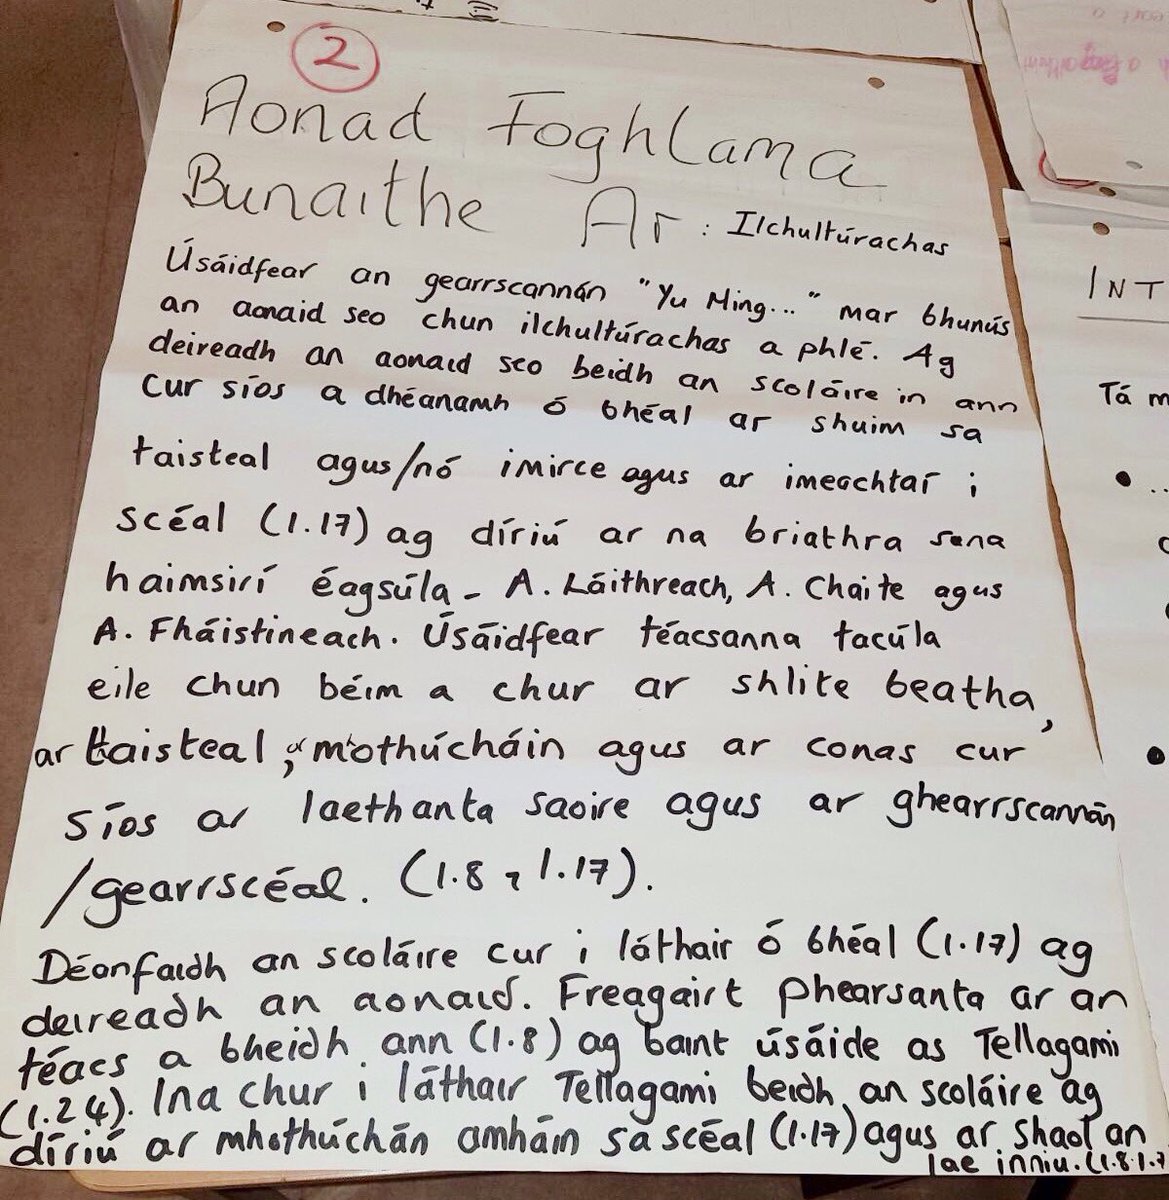 2
Aonad Foghlama
Bunaithe Ar : Ilchultúrachas
Úsáidfear an gearrscannán "Yu Ming..." mar bhunús
an aonaid seo chun ilchultúrachas a phlé. Ag
deireadh an aonaid seo beidh an scoláire in ann
cur síos a dhéanamh ó bhéal ar shuim sa
taisteal agus/nó imirce agus ar imeachtaí i
scéal (1.17) ag díriú ar na briathra sana
haimsirí éagsúla - A. Láithreach, A. Chaite agus
A. Fháistineach. Úsáidfear téacsanna tacúla
eile chun béim a chur ar shlite beatha,
ar thaisteal, ar mhothúcháin agus ar conas cur
síos ar laethanta saoire agus ar ghearrscannán
/gearrscéal. (1.8, 1.17).
Déanfaidh an scoláire cur i láthair ó bhéal (1.17) ag
deireadh an aonaid. Freagairt phearsanta ar an
téacs a bheidh ann (1.8) ag baint úsáide as Tellagami
(1.24). Ina chur i láthair Tellagami beidh an scoláire ag
díriú ar mhothúchán amháin sa scéal (1.17) agus ar shaol an
lae inniu. (1.8 1.7
INT
Tá m